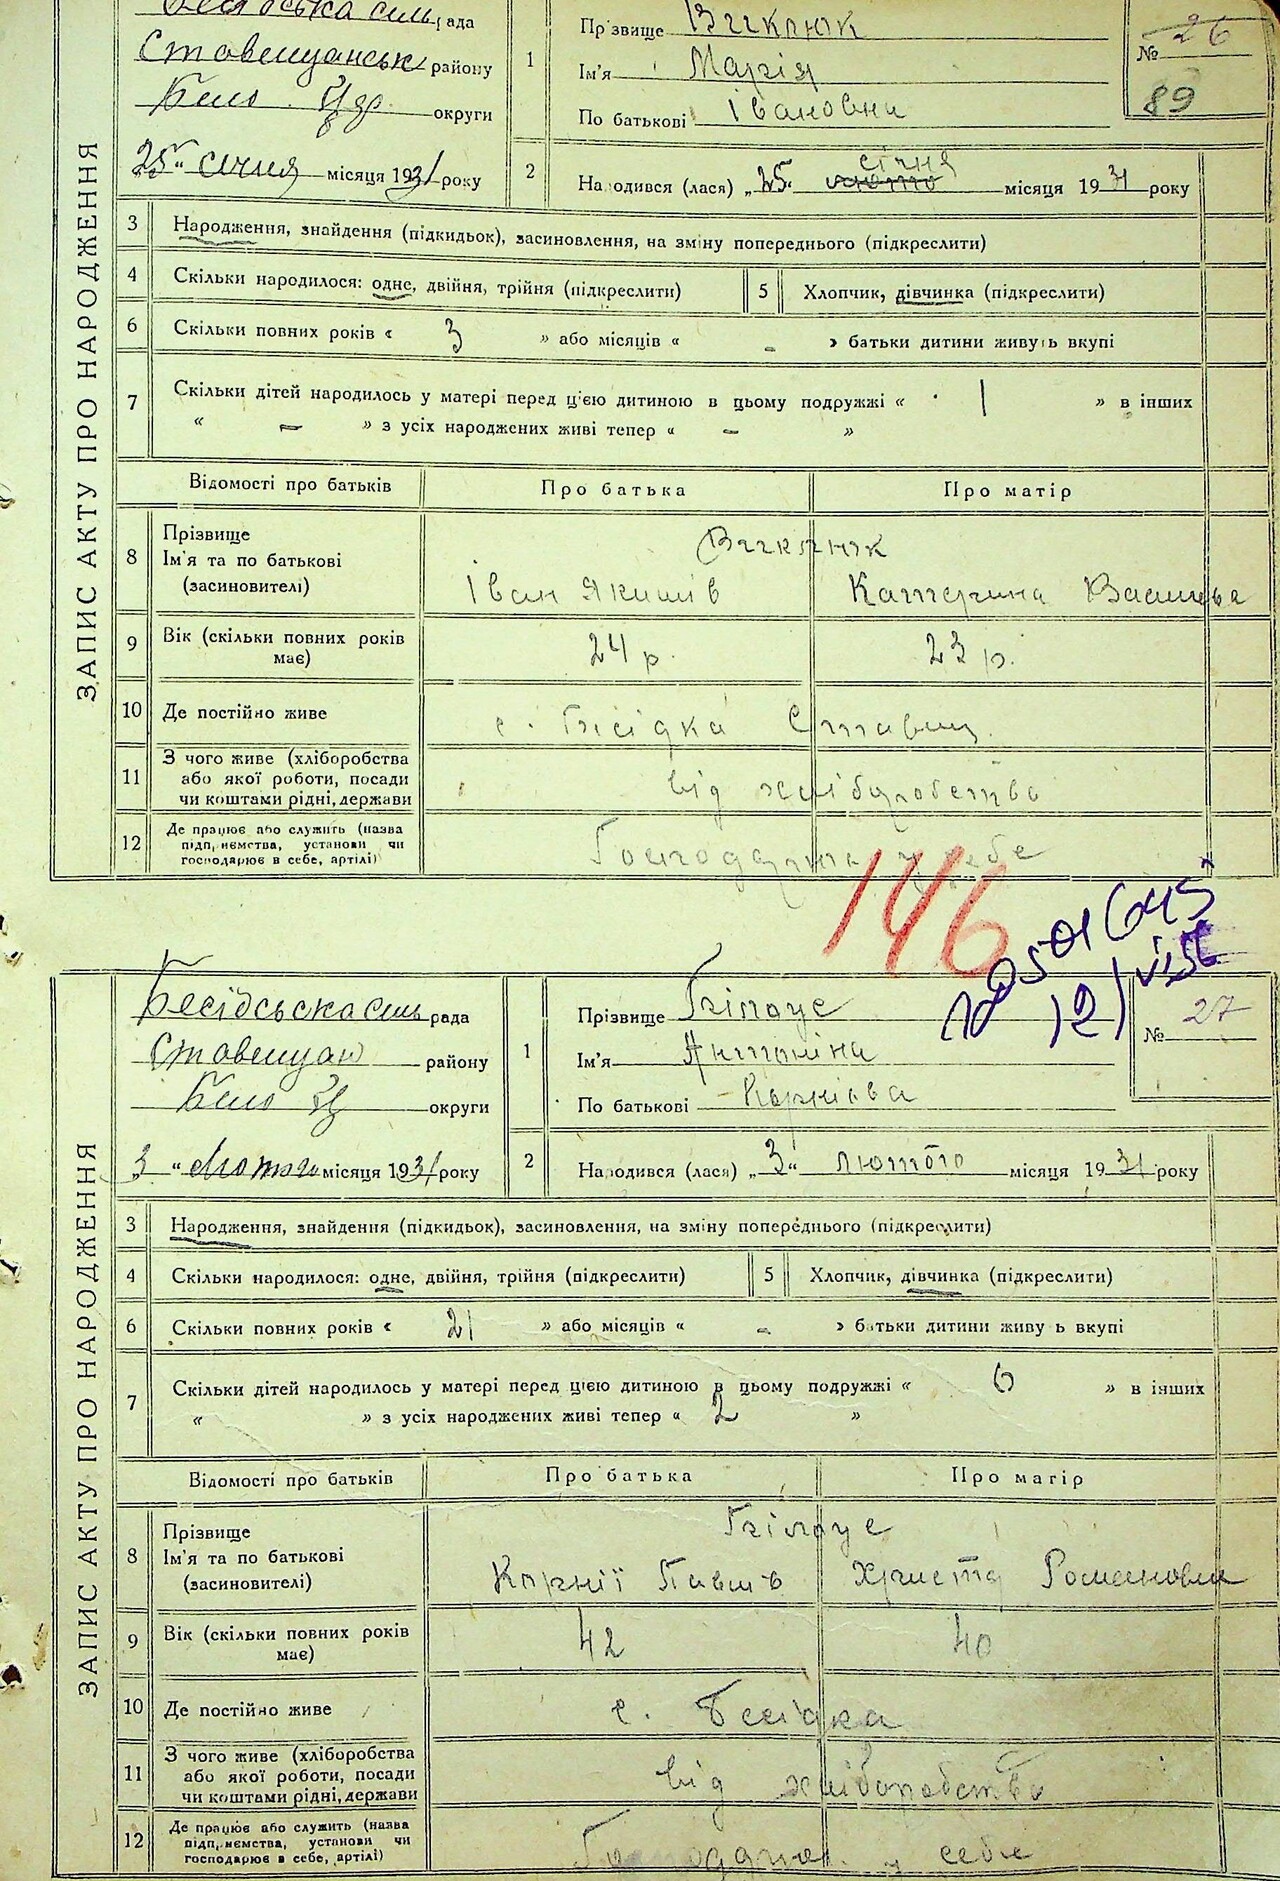 Бесідська сельрада
Ставищанськ району
Біло Цер. округи
"25" січня місяця 1931 року
ЗАПИС АКТУ ПРО НАРОДЖЕННЯ
1
Прізвище
Ім'я Марія
По батькові Івановна
№ 26
89
2
Народився (лася) „25" лютого січня місяця 1931 року
3 Народження, знайдення (підкидьок), засиновлення, на зміну попереднього (підкреслити)
4 Скільки народилося: одне, двійня, трійня (підкреслити)
5 Хлопчик, дівчинка (підкреслити)
6 Скільки повних років « 3 » або місяців « - » батьки дитини живуть вкупі
7 Скільки дітей народилось у матері перед цією дитиною в цьому подружжі « 1 » в інших
« – » з усіх народжених живі тепер « – »
Відомості про батьків
Про батька
Про матір
8 Прізвище
Ім'я та по батькові
(засиновителі)
Іван Якимів
Катерина
9 Вік (скільки повних років
має)
24 р.
23 р.
10 Де постійно живе
с. Бесідка Ставищ.
11 З чого живе (хліборобства
або якої роботи, посади
чи коштами рідні, держави
від хліборобства
12 Де працює або служить (назва
підприємства, установи чи
господарює в себе, артілі)
у себе
146
Бесідська сель рада
Ставищан район
Біло Ц округи
3 "Лютого місяця 1931 року
ЗАПИС АКТУ ПРО НАРОДЖЕННЯ
1
Прізвище Білоус
Ім'я Антоніна
По батькові Корнієва
№ 27
2
Народився (лася) „3" лютого місяця 1931 року
3 Народження, знайдення (підкидьок), засиновлення, на зміну попереднього (підкреслити)
4 Скільки народилося: одне, двійня, трійня (підкреслити)
5 Хлопчик, дівчинка (підкреслити)
6 Скільки повних років « 21 » або місяців « - » батьки дитини живу ь вкупі
7 Скільки дітей народилось у матері перед цією дитиною в цьому подружжі « 6 » в інших
« » з усіх народжених живі тепер « 2 »
Відомості про батьків
Про батька
Про матір
8 Прізвище
Ім'я та по батькові
(засиновителі)
Білоус
Корнії Павлів
Христя Романовна
9 Вік (скільки повних років
має)
42
40
10 Де постійно живе
с. Бесідка
11 З чого живе (хліборобства
або якої роботи, посади
чи коштами рідні, держави
від хліборобства
12 Де працює або служить (назва
підприємства, установи чи
господарює в себе, артілі)
у себе